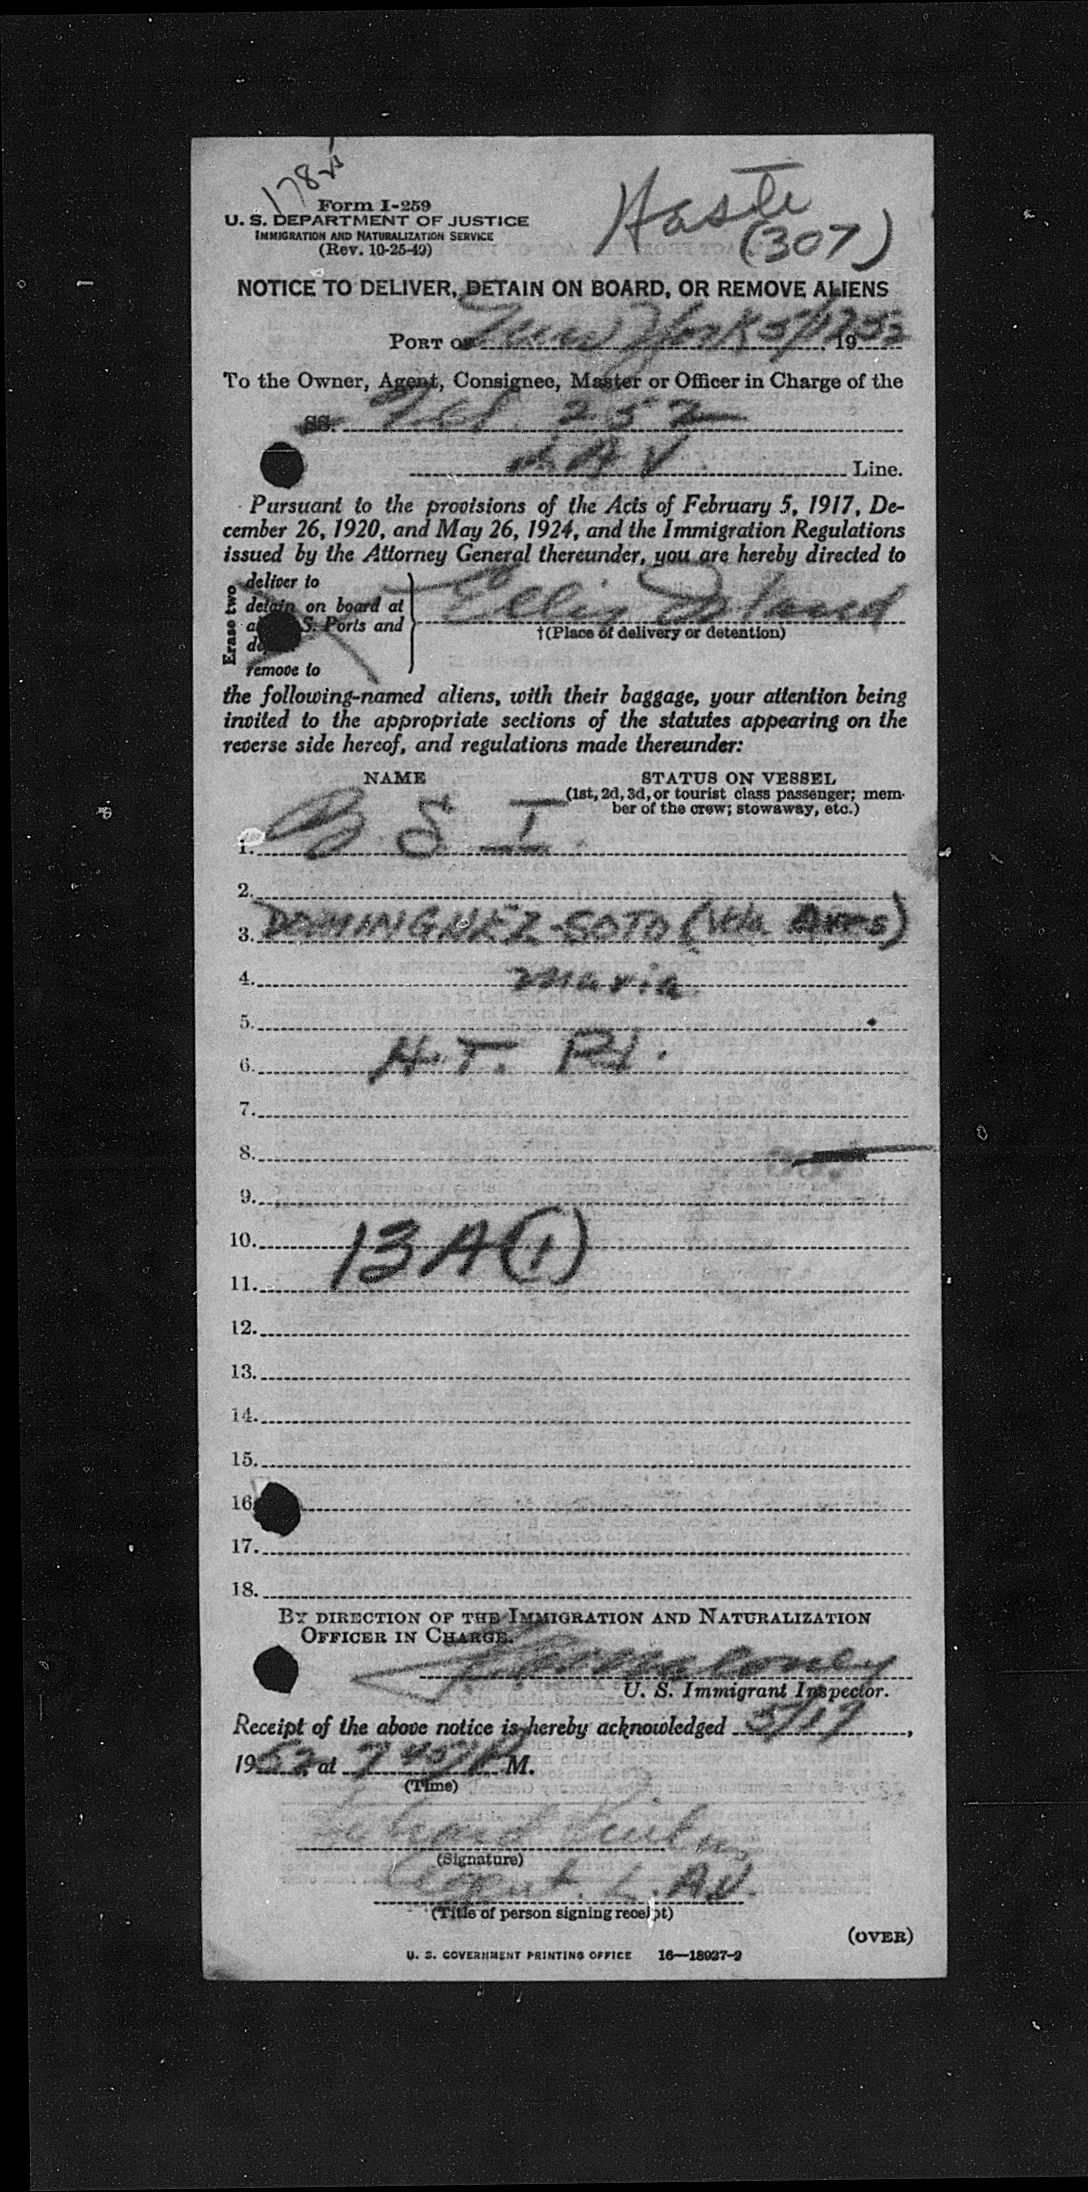 178
Haste
(307)
Form I-259
U. S. DEPARTMENT OF JUSTICE
IMMIGRATION AND NATURALIZATION SERVICE
(Rev. 10-25-49)
NOTICE TO DELIVER, DETAIN ON BOARD, OR REMOVE ALIENS
PORT OF New York 5/17 1952
To the Owner, Agent, Consignee, Master or Officer in Charge of the
SS. 252
LAV Line.
Pursuant to the provisions of the Acts of February 5, 1917, De-
cember 26, 1920, and May 26, 1924, and the Immigration Regulations
issued by the Attorney General thereunder, you are hereby directed to
Erase two
deliver to
detain on board at
S. Ports and
remove to
Ellis Island
†(Place of delivery or detention)
the following-named aliens, with their baggage, your attention being
invited to the appropriate sections of the statutes appearing on the
reverse side hereof, and regulations made thereunder:
NAME
STATUS ON VESSEL
(1st, 2d, 3d, or tourist class passenger; mem-
ber of the crew; stowaway, etc.)
1. B. S I.
2.
3. DOMINGUEZ-SOTO
4. Maria
5.
6. H.T.
7.
8.
9.
10. 13 A (1)
11.
12.
13.
14.
15.
16
17.
18.
BY DIRECTION OF THE IMMIGRATION AND NATURALIZATION
OFFICER IN CHARGE.
U. S. Immigrant Inspector.
Receipt of the above notice is hereby acknowledged 5/17,
1952, at 7 45 P M.
(Time)
(Signature)
Agent. L.AV.
(Title of person signing receipt)
(OVER)
U. S. GOVERNMENT PRINTING OFFICE 16—18937-2